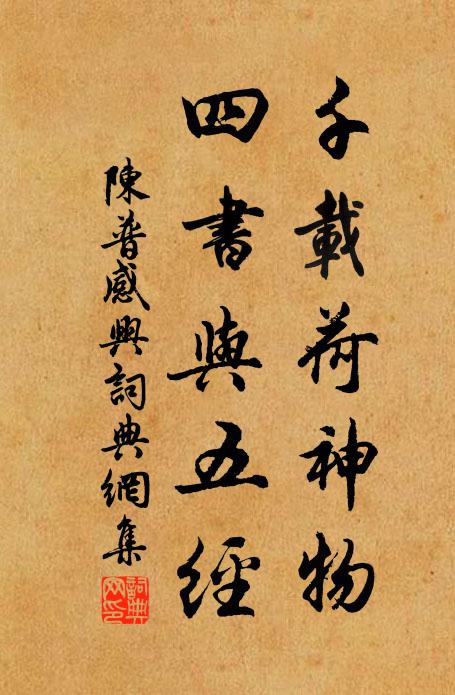 千載荷神物
四書與五經
陳普感興詞典網集
詞典網印